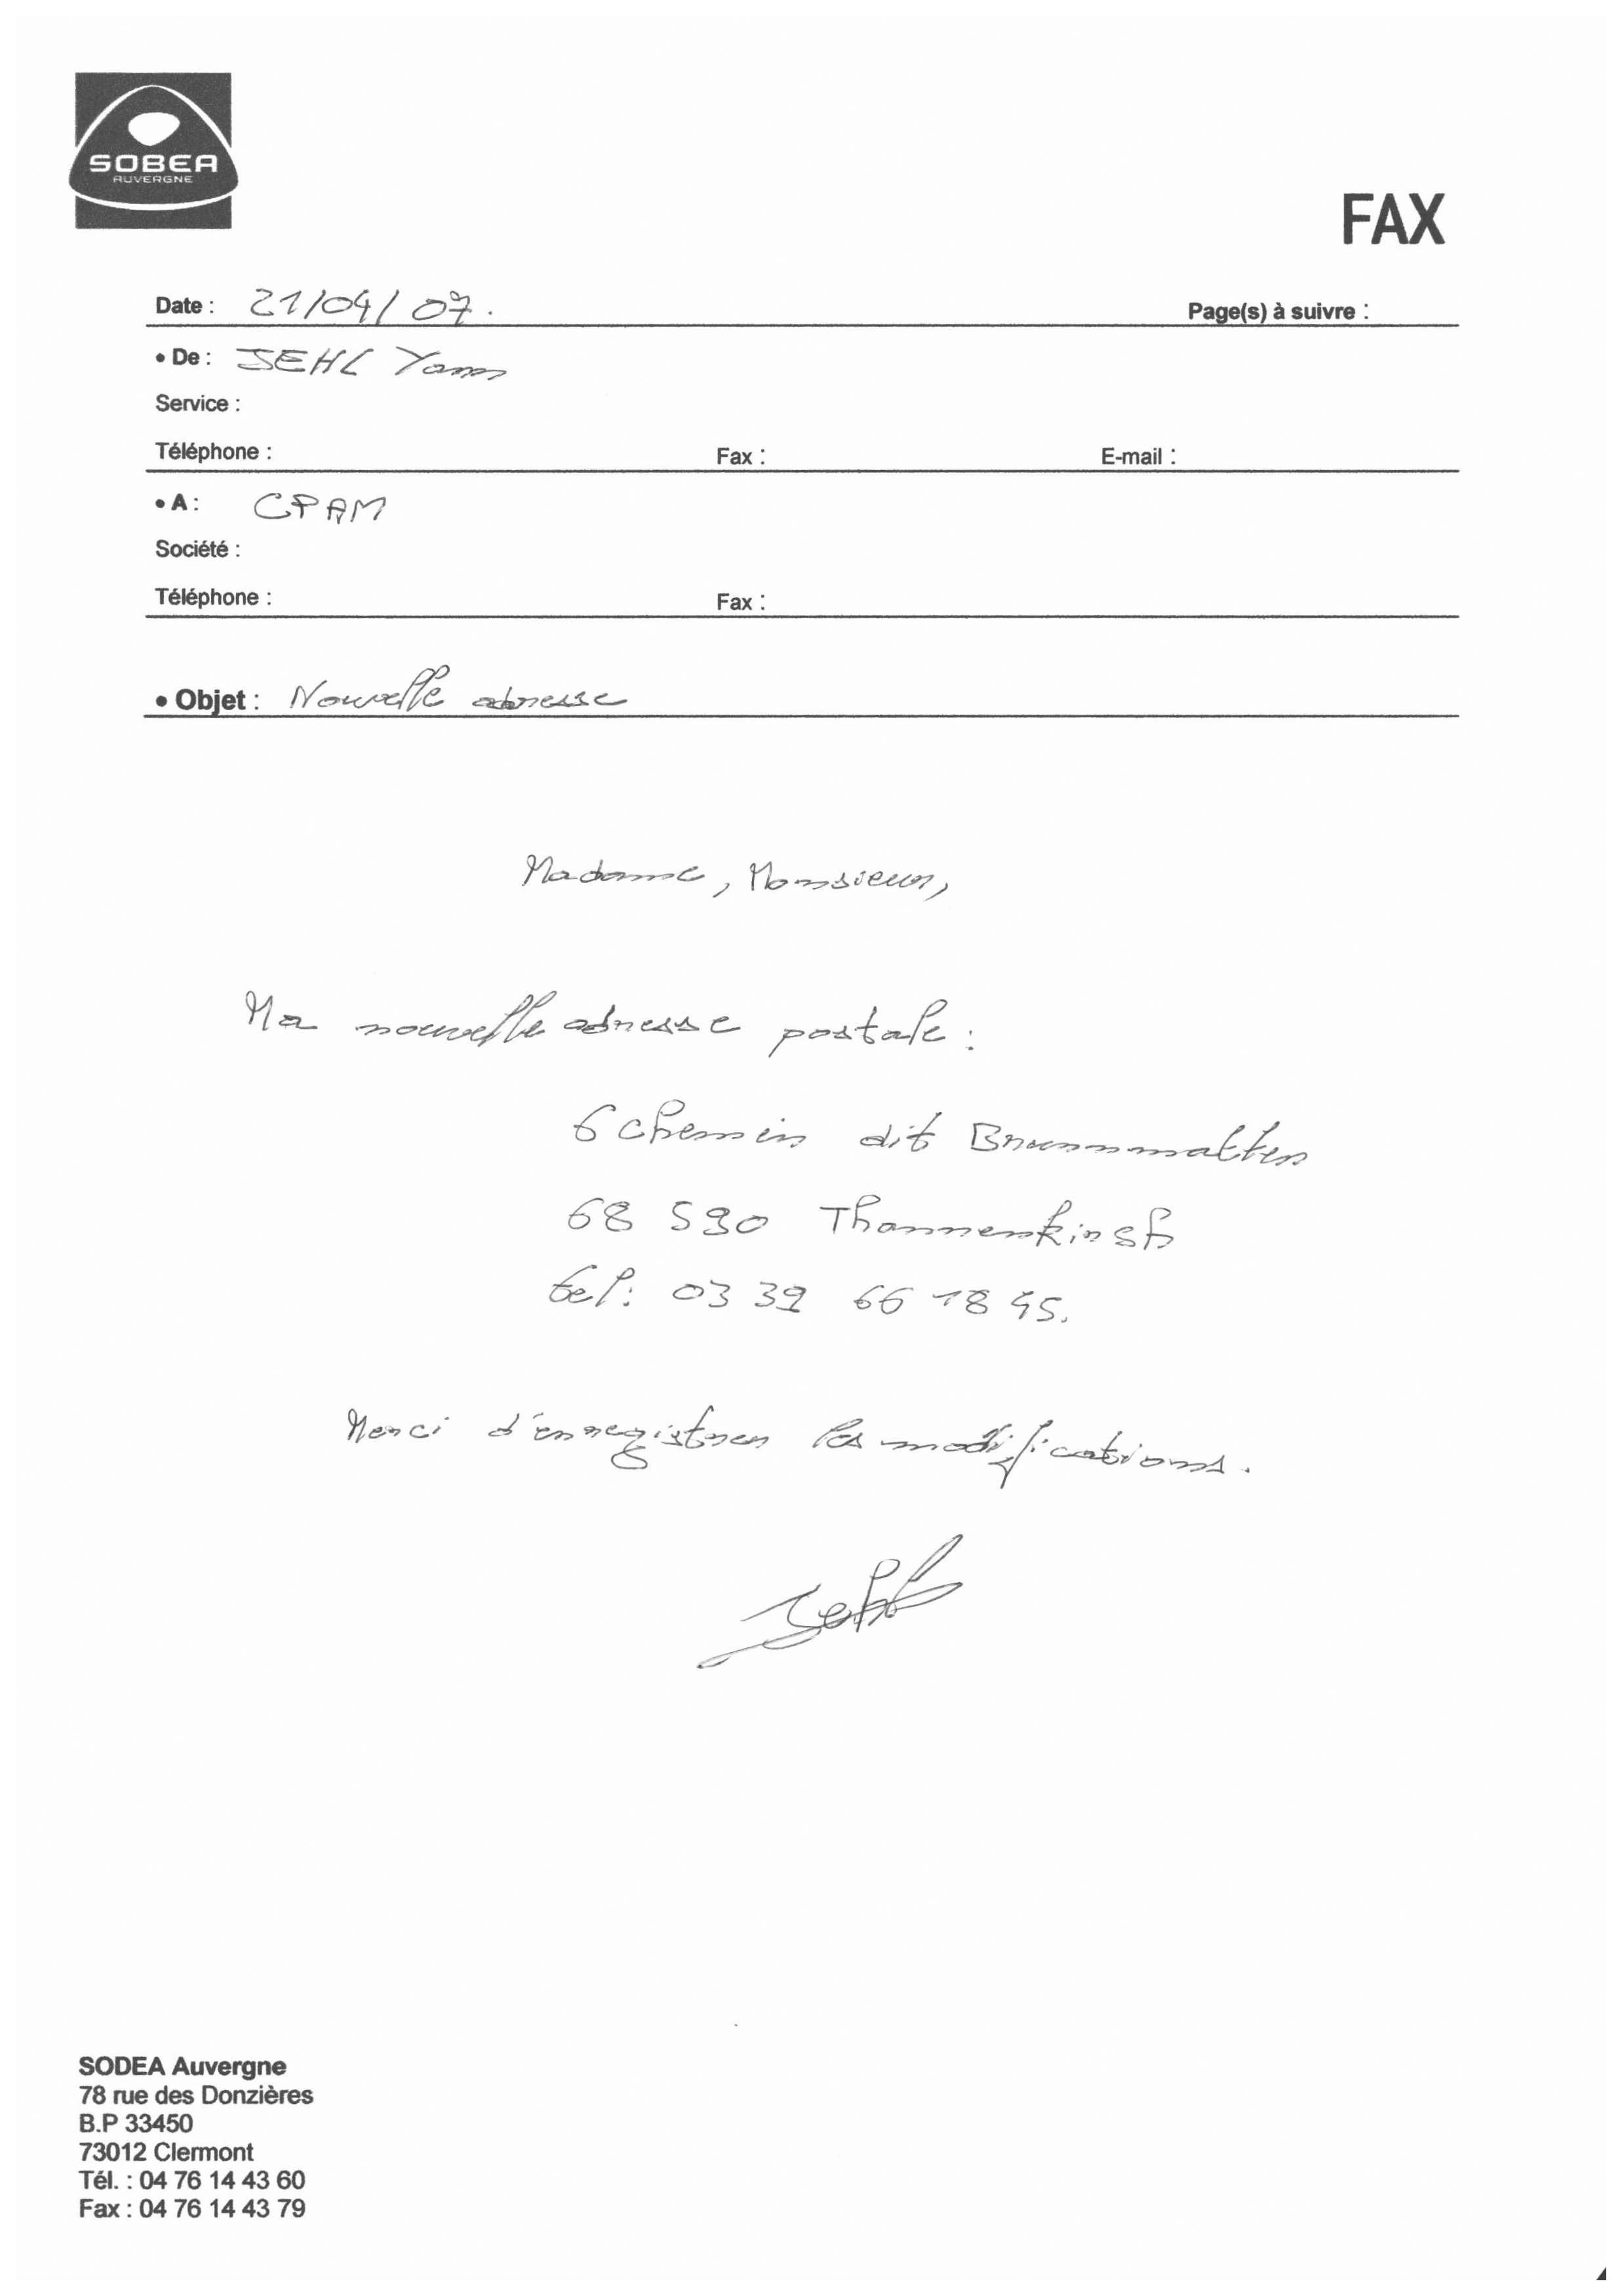 SOBEA
AUVERGNE
FAX
Date : 21/04/07.
Page(s) à suivre :
• De : SEHL Yann
Service :
Téléphone : Fax : E-mail :
• A : CPAM
Société :
Téléphone : Fax :
• Objet : Nouvelle adresse
Madame, Monsieur,
Ma nouvelle adresse postale :
6 chemin dit Brunnmatten
68 590 Thannenkirch
tel: 03 39 66 18 45.
Merci d'enregistrer les modifications.
Sehl
SODEA Auvergne
78 rue des Donzières
B.P 33450
73012 Clermont
Tél. : 04 76 14 43 60
Fax : 04 76 14 43 79